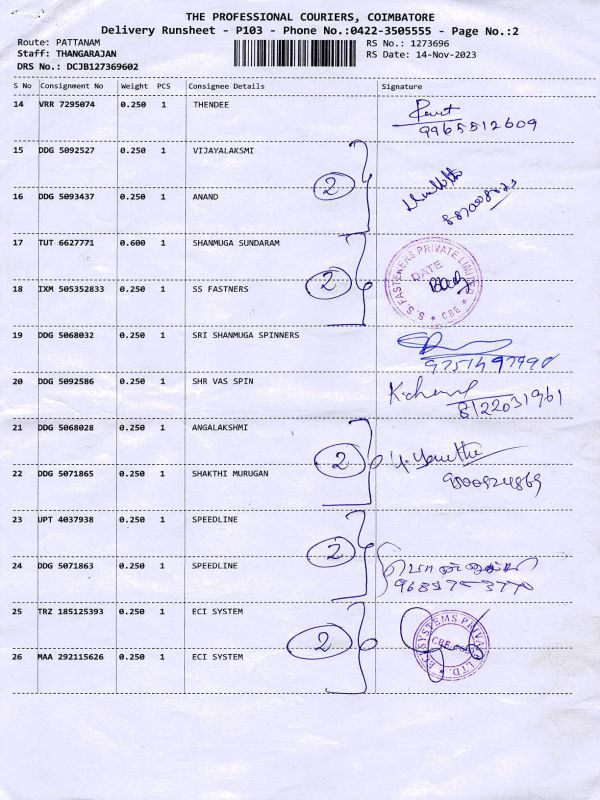 THE PROFESSIONAL COURIERS, COIMBATORE
Delivery Runsheet - P103 - Phone No.:0422-3505555 - Page No.:2
Route: PATTANAM RS No.: 1273696
Staff: THANGARAJAN RS Date: 14-Nov-2023
DRS No.: DCJB127369602
S No Consignment No Weight PCS Consignee Details Signature
14 VRR 7295074 0.250 1 THENDEE
9965512609
15 DDG 5092527 0.250 1 VIJAYALAKSMI
2
16 DDG 5093437 0.250 1 ANAND
17 TUT 6627771 0.600 1 SHANMUGA SUNDARAM
S.S. FASTENERS PRIVATE LIMITED
DATE
* CBE *
2
18 IXM 505352833 0.250 1 SS FASTNERS
19 DDG 5068032 0.250 1 SRI SHANMUGA SPINNERS
9751497990
20 DDG 5092586 0.250 1 SHR VAS SPIN
8122031961
21 DDG 5068028 0.250 1 ANGALAKSHMI
2
22 DDG 5071865 0.250 1 SHAKTHI MURUGAN
23 UPT 4037938 0.250 1 SPEEDLINE
2
24 DDG 5071863 0.250 1 SPEEDLINE
25 TRZ 185125393 0.250 1 ECI SYSTEM
2
26 MAA 292115626 0.250 1 ECI SYSTEM